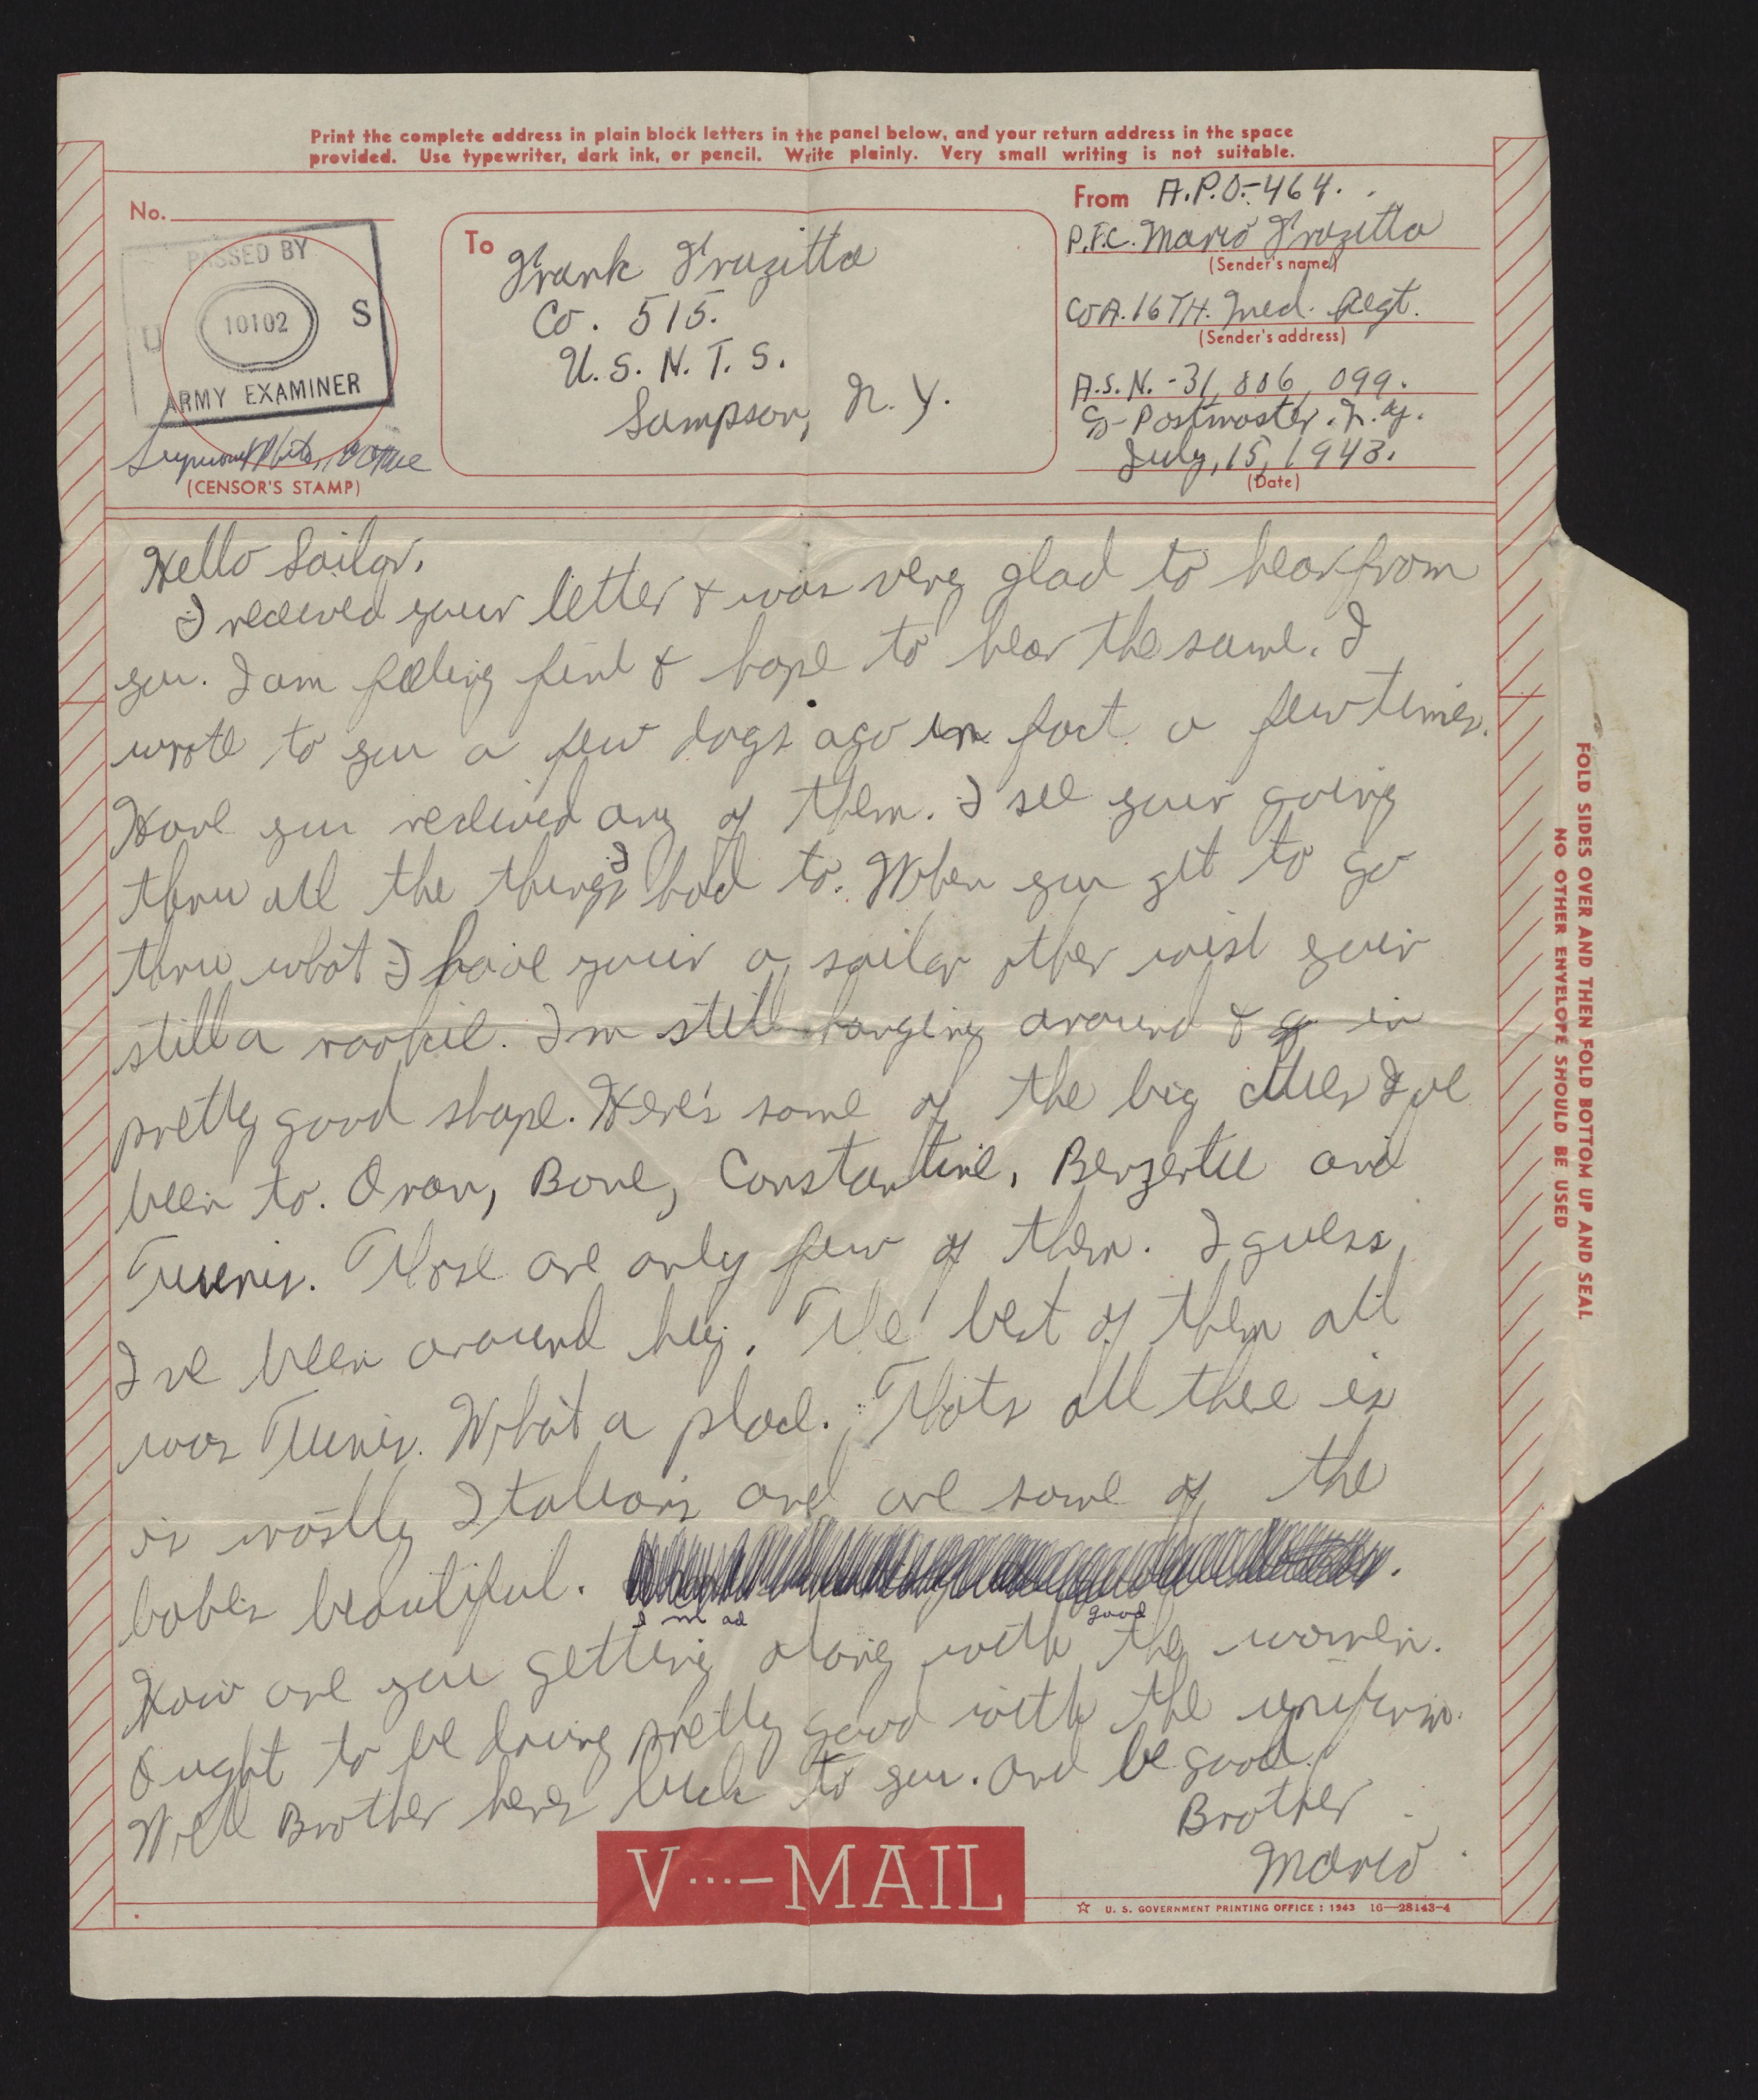 Print the complete address in plain block letters in the panel below, and your return address in the space
provided. Use typewriter, dark ink, or pencil. Write plainly. Very small writing is not suitable.
No.
PASSED BY
U 10102 S
ARMY EXAMINER
(CENSOR'S STAMP)
To
Frank Frazitta
Co. 515.
U.S.N.T.S.
Sampson, N.Y.
From A.P.O.-464.
P.F.C. Mario Frazitta
(Sender's name)
Co A. 16TH. Med. Regt.
(Sender's address)
A.S.N.-31,886,099.
Postmaster. N.Y.
July, 15, 1943.
(Date)
Hello Sailor,
I recieved your letter & was very glad to hear from
you. I am feeling fine & hope to hear the same. I
wrote to you a few days ago in fact a few times.
Have you recieved any of them. I see your going
thru all the things I had to. When you get to go
thru what I have your a sailor other wise your
still a rookie. I'm still hanging around & in
pretty good shape. Here's some of the big cities I've
been to. Oran, Bone, Constantine, Berzertee and
Tuenis. Those are only few of them. I guess
I've been around hey. The best of them all
was Tuenis. What a place. Thats all there is
is mostly Italians and are some of the
babes beautiful.
good
How are you getting along with the women.
Ought to be doing pretty good with the uniform.
Well Brother heres luck to you. And be good.
Brother
Mario
V···—MAIL
☆ U. S. GOVERNMENT PRINTING OFFICE : 1943 16—28143-4
FOLD SIDES OVER AND THEN FOLD BOTTOM UP AND SEAL
NO OTHER ENVELOPE SHOULD BE USED